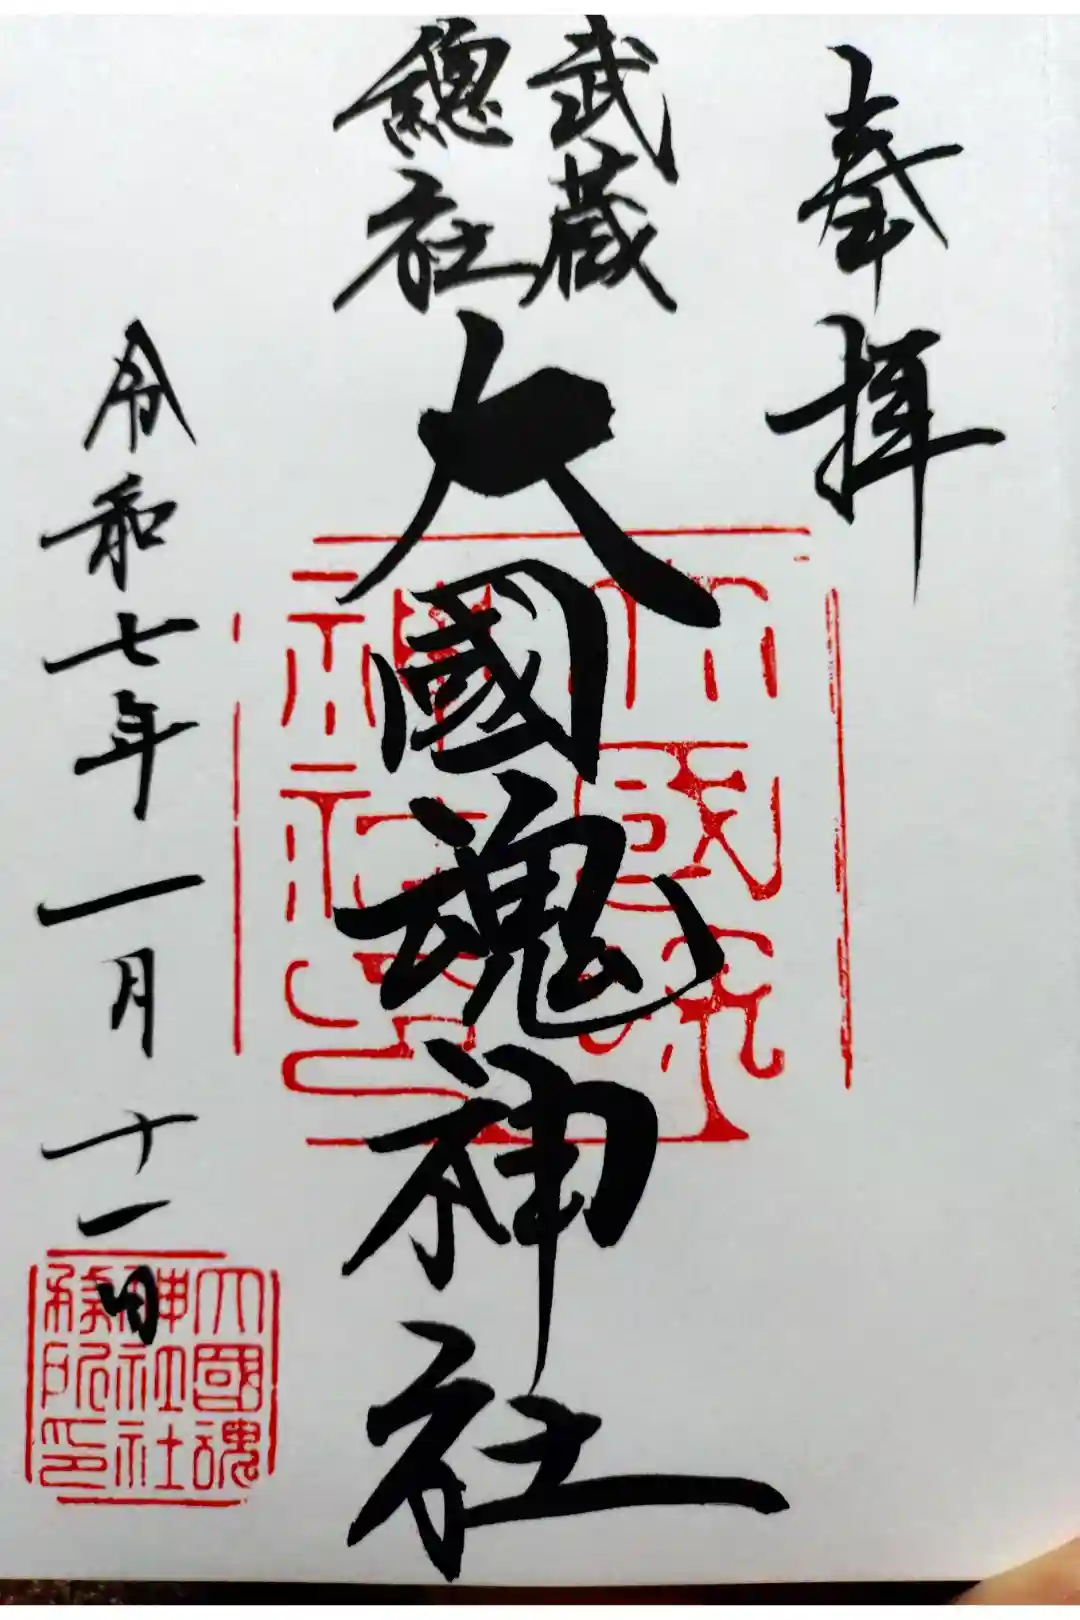 奉拝
武蔵
總社
大國魂神社
令和七年一月十一日
大國魂
神社社
務所印